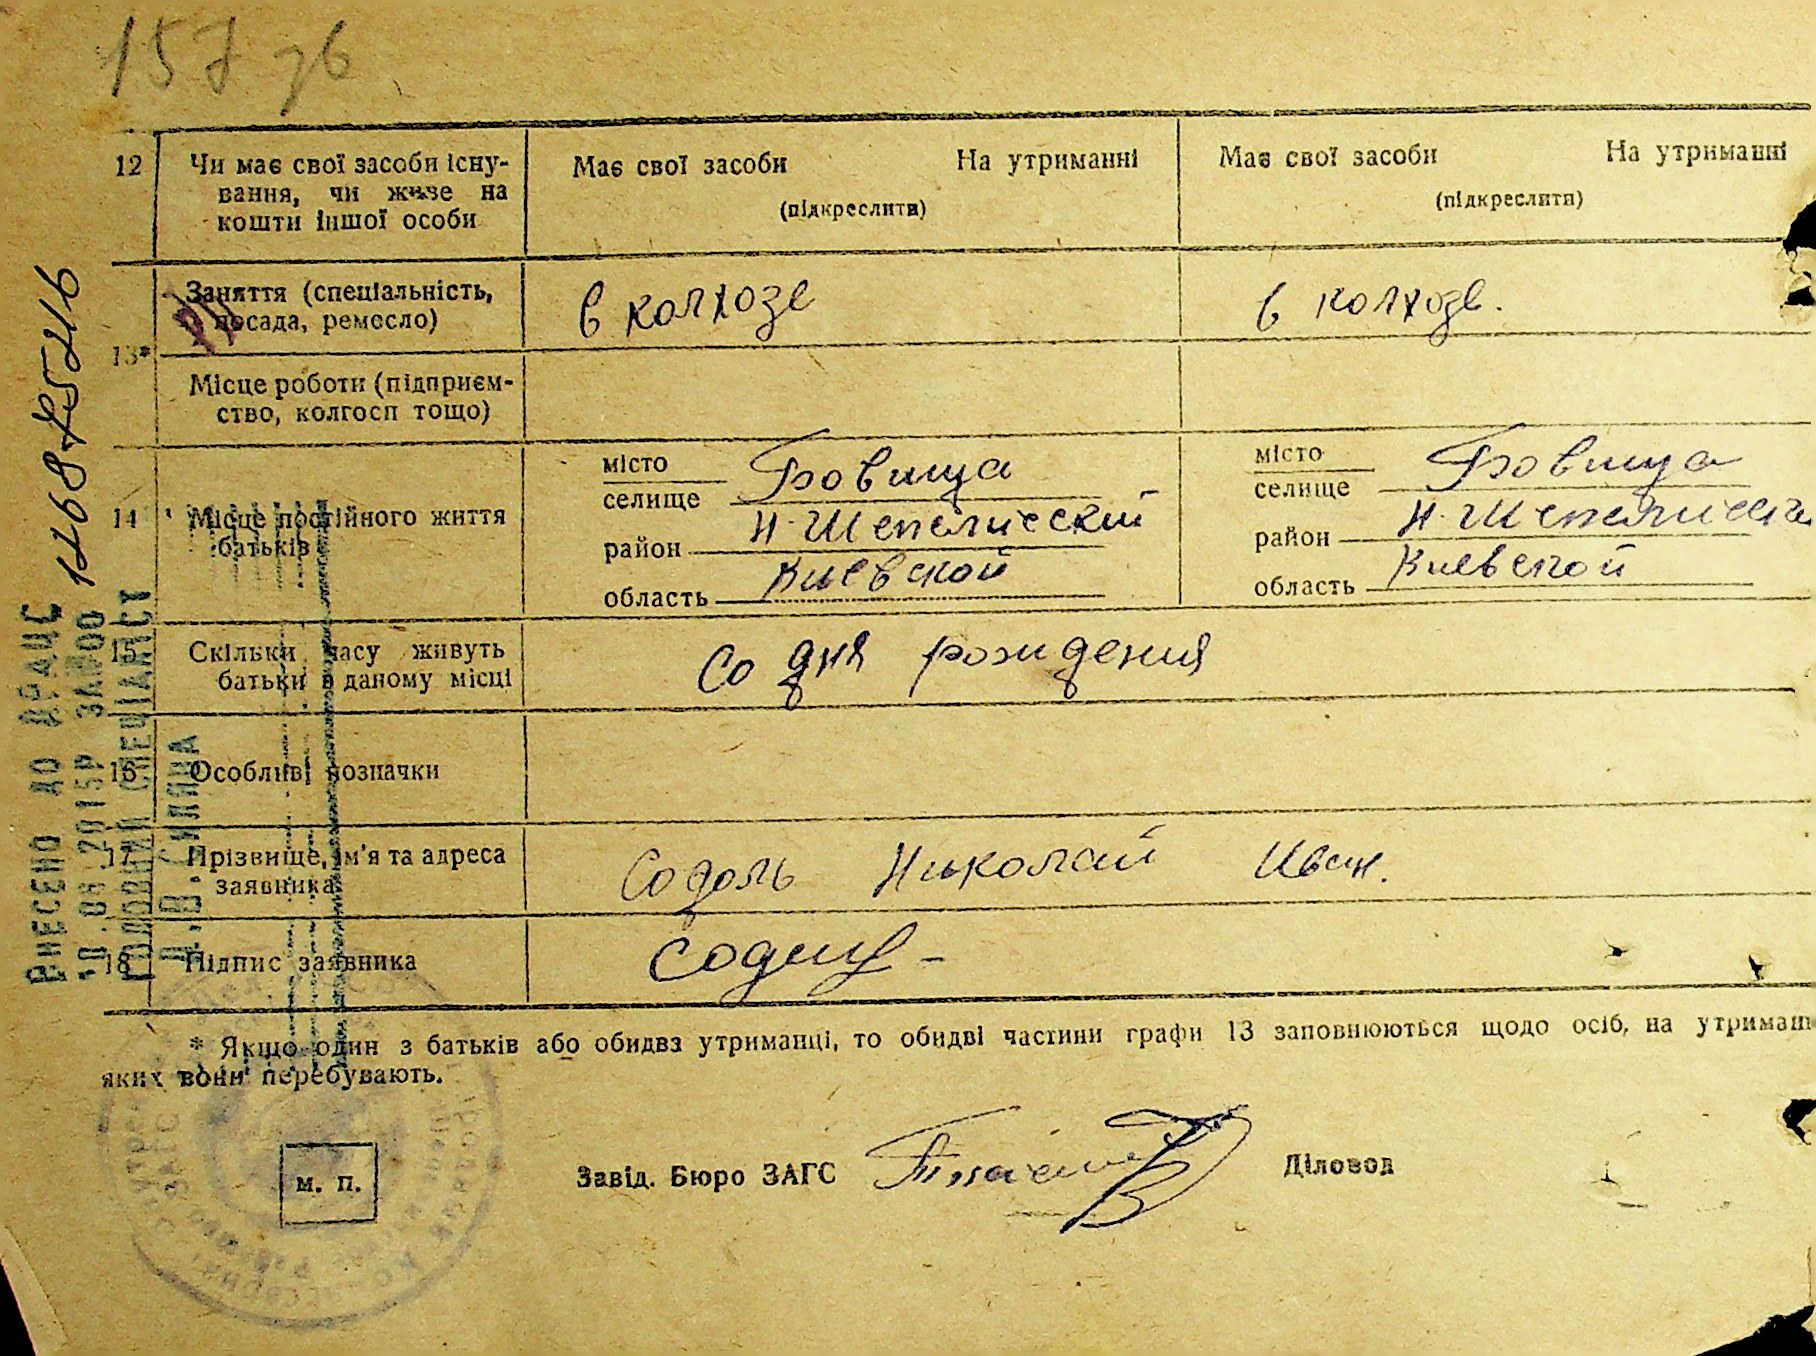 157 зв
12 Чи має свої засоби існу- Має свої засоби На утриманні Має свої засоби На утриманні
вання, чи живе на (підкреслити) (підкреслити)
кошти іншої особи
Заняття (спеціальність, в колхозе в колхозе.
посада, ремесло)
13*
Місце роботи (підприєм-
ство, колгосп тощо)
місто Бовища місто Бовища
селище селище
14 Місце постійного життя район Н-Шепелический район Н-Шепелически
батьків область Киевской область Киевской
15 Скільки часу живуть Со дня рождения
батьки в даному місці
16 Особливі позначки
17 Прізвище, ім'я та адреса Содоль Николай Иван.
заявника
18 Підпис заявника
* Якщо один з батьків або обидва утриманці, то обидві частини графи 13 заповнюються щодо осіб, на утриман
яких вони перебувають.
м. п. Завід. Бюро ЗАГС Діловод
ВНЕСЕНО ДО ДРАЦС
2015Р
ГОЛОВНИЙ СПЕЦІАЛІСТ